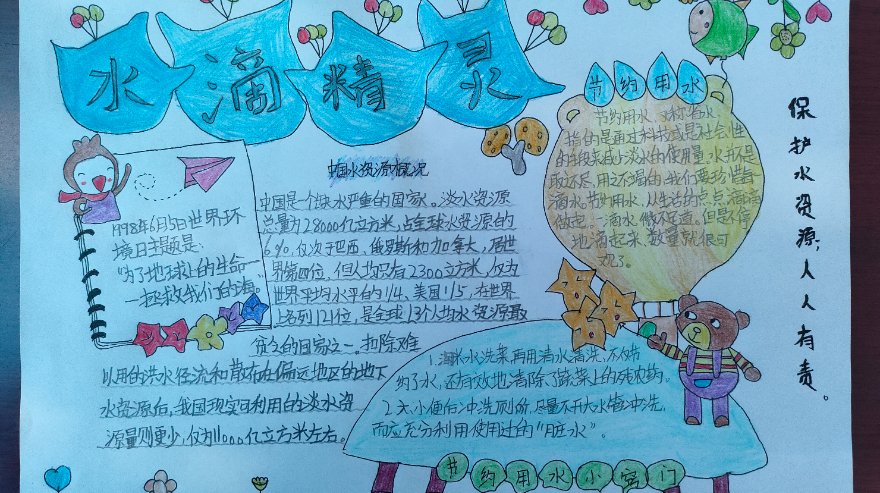 水滴精灵
1998年6月5日世界环
境日主题是:
"为了地球上的生命——
拯救我们的海。
中国水资源概况
中国是一个缺水严重的国家。淡水资源
总量为28000亿立方米,占全球水资源的
6%,仅次于巴西、俄罗斯和加拿大,居世
界第四位,但人均只有2300立方米,仅为
世界平均水平的1/4、美国1/5,在世界
上名列121位,是全球13个人均水资源最
贫乏的国家之一。扣除难
以用的洪水径流和散布在偏远地区的地下
水资源后,我国现实可利用的淡水资
源量则更少,仅为11000亿立方米左右。
节约用水
节约用水,又称省水
指的是通过科技或是社会性
的手段来减少淡水的使用量,水并不是
取之不尽,用之不竭的,我们要珍惜每
滴水,节约用水,从生活的点点滴滴
做起,一滴水,微不足道。但是不停
地滴起来,数量就很可
观了。
1.淘米水洗菜,再用清水清洗,不仅节
约了水,还有效地清除了蔬菜上的残存农药。
2.大、小便后冲洗厕所,尽量不开大水管冲洗,
而应充分利用使用过的"脏水"。
节约用水小窍门
保护水资源,人人有责。